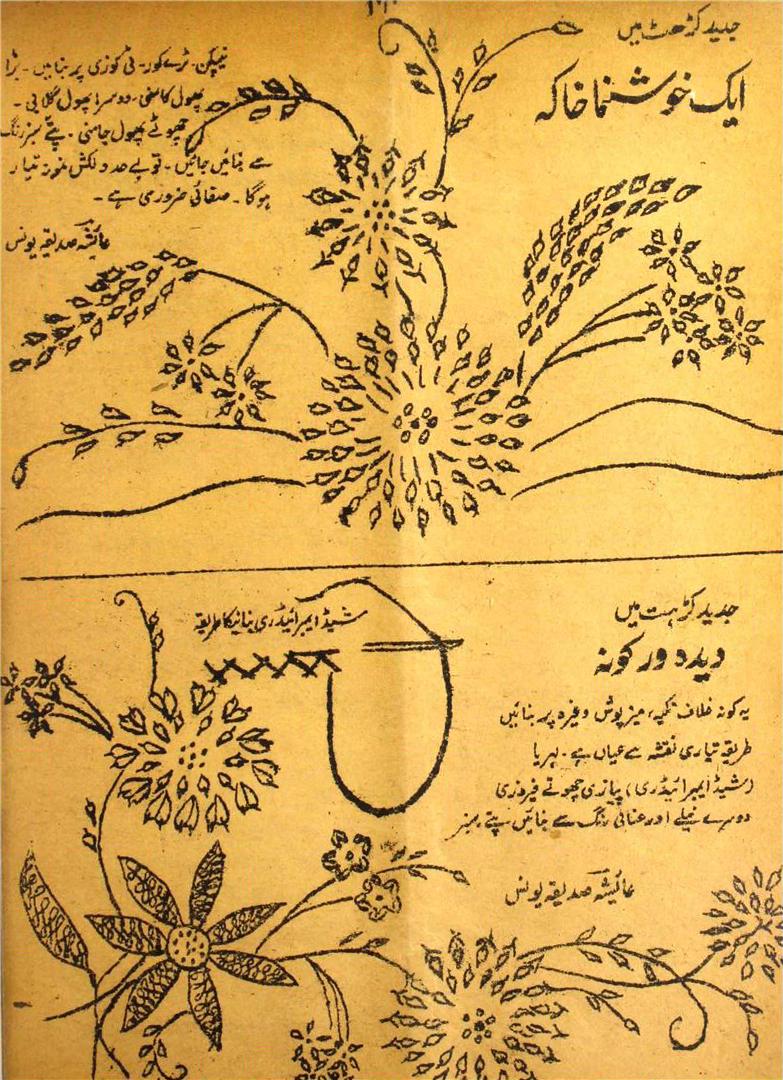 جدید کڑھت میں
ایک خوشنما خاکہ
نیپکن۔ ٹرے کور۔ ٹی کوزی پر بنائیں۔ بڑا
پھول کاسنی۔ دوسرا پھول گلابی۔
چھوٹے پھول جامنی۔ پتے سبز رنگ
سے بنائیں جائیں۔ تو بے حد دلکش نمونہ تیار
ہوگا۔ صفائی ضروری ہے۔
عائشہ صدیقہ یونس
شیڈ ایمبرائیڈری بنانیکا طریقہ
جدید کڑہت میں
دیدہ ور کونہ
یہ کونہ غلاف تکیہ، میز پوش وغیرہ پر بنائیں
طریقہ تیاری نقشہ سے عیاں ہے۔ لہریا
(شیڈ ایمبرائیڈری) پیازی چھوٹے فیروزی
دوسرے نیلے اور عنابی رنگ سے بنائیں پتے سبز
عائشہ صدیقہ یونس